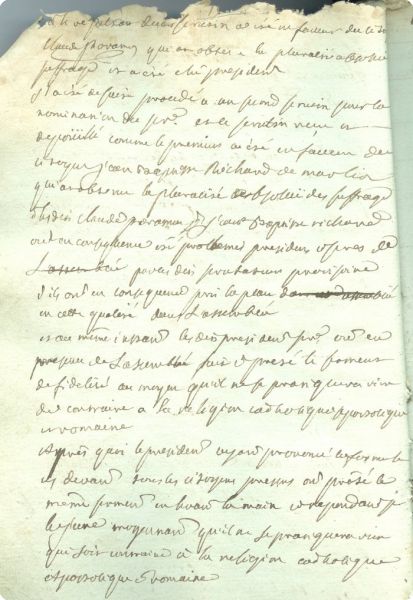 du scrutin a été en faveur du citoyen
Claude qui a obtenu la pluralité absolue
suffrage et a été élu president
il a été de suite procédé a un second scrutin pour la
nomination du sre. et le scrutin recu et
depouillé comme le premier a été en faveur du
citoyen jean Baptiste Richard de
qui a obtenu la pluralité absolue des suffrages
lesdits Claude jean Baptiste richard
ont en consequence été proclamés president et sre de
Lassemblée provisoire
ils ont en consequence pris la place
en cette qualité dans Lassemblée
et au même instant lesdits president sre. ont en
presence de Lassemblée fait et presté le serment
de fidélité au moyen qu'il ne se pratiquera rien
de contraire a la religion catholique apostolique
et romaine
Après quoi le president ayant prononcé le serment
et devant tous les citoyens presens ont presté le
même serment en levant la main et repondant je
le jure moyennant qu'il ne se pratiquera rien
qui soit contraire à la religion catholique
apostolique et romaine